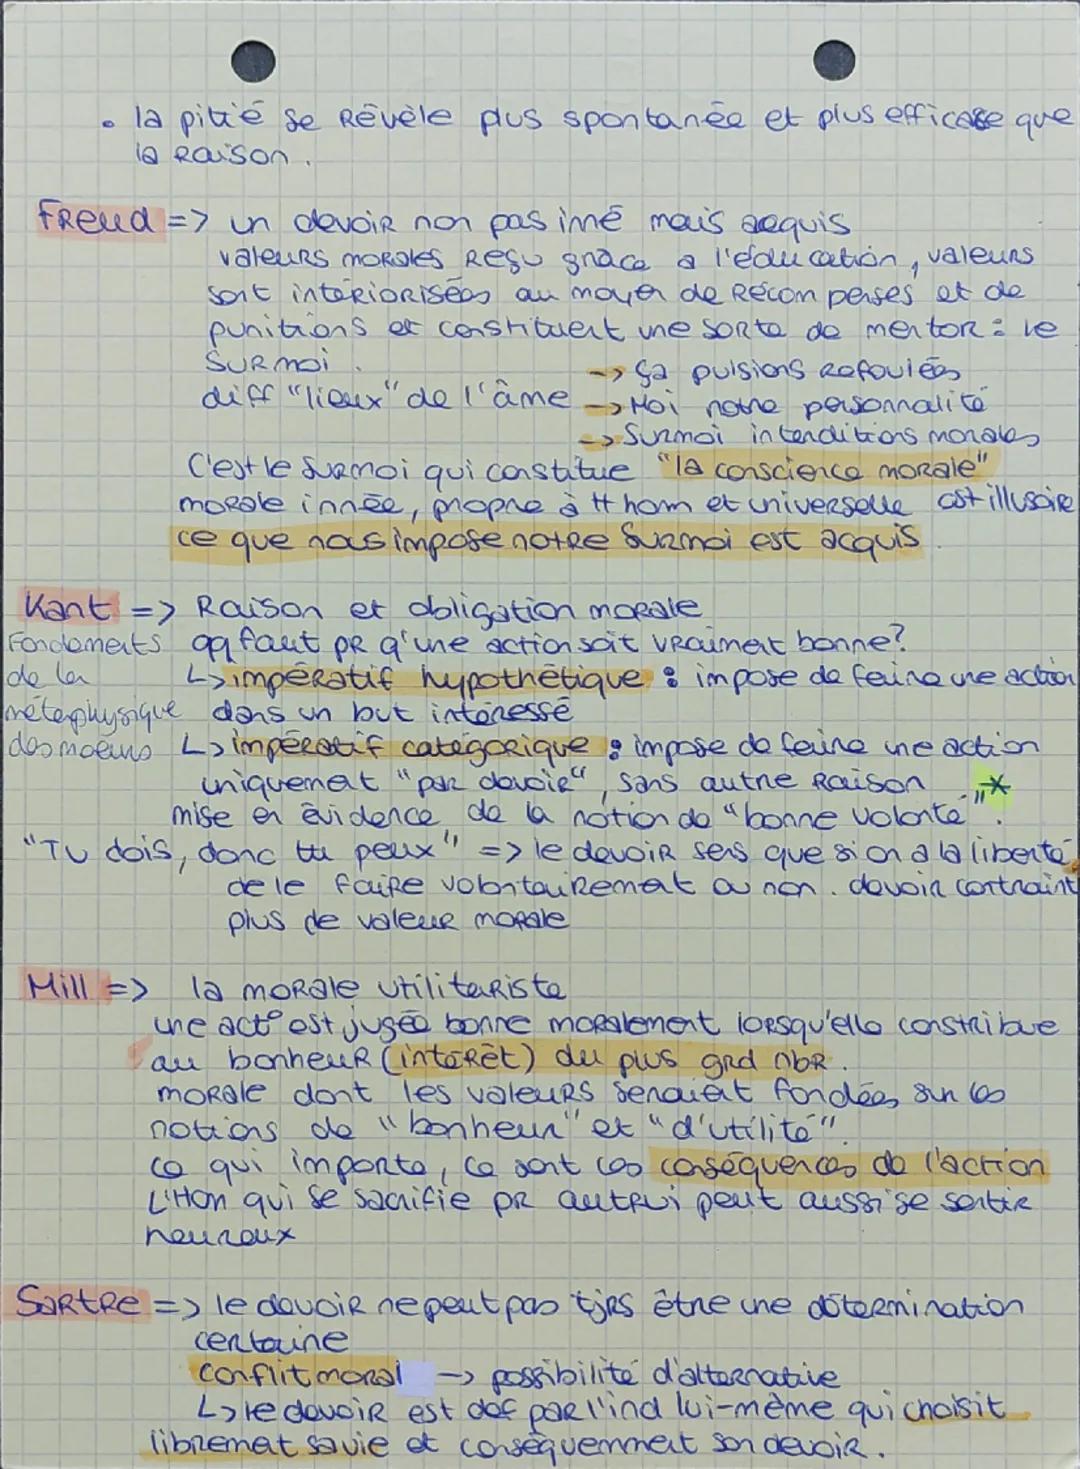 • la pitié se Révèle plus spontanée et plus efficace que
la Raison.
Freud => un devoir non pas inné mais acquis
valeurs morales Reçu grâce a l'éducation, valeurs
sont intériorisées au moyen de Récompenses et de
punitions et constituent une sorte de mentor : le
Surmoi.
diff "lieux" de l'âme -> ça pulsions refoulées
-> Moi notre personnalité
-> Surmoi interditions morales
C'est le Surmoi qui constitue "la conscience morale"
morale innée, propre à tt hom et universelle est illusoire
ce que nous impose notre Surmoi est acquis.
Kant => Raison et obligation morale
Fondements qq faut pr q'une action soit vraiment bonne?
de la ↳ impératif hypothétique : impose de faire une action
métaphysique dans un but intéressé
des moeurs ↳ impératif catégorique : impose de faire une action
uniquement "par devoir", sans autre Raison *
mise en évidence de la notion de "bonne volonté".
"Tu dois, donc tu peux" => le devoir sens que si on a la liberté
de le faire volontairement ou non. devoir contraint
plus de valeur morale
Mill => la morale utilitariste
une act° est jugée bonne moralement lorsqu'elle constribue
au bonheur (intérêt) du plus grd nbr.
morale dont les valeurs seraient fondées sur les
notions de "bonheur" et "d'utilité".
ce qui importe, ce sont les conséquences de l'action
L'Hom qui se sacrifie pr autrui peut aussi se sentir
heureux
Sartre => le devoir ne peut pas tjrs être une détermination
certaine
conflit moral -> possibilité d'alternative
↳ le devoir est déf par l'ind lui-même qui choisit
librement sa vie et conséquemment son devoir.